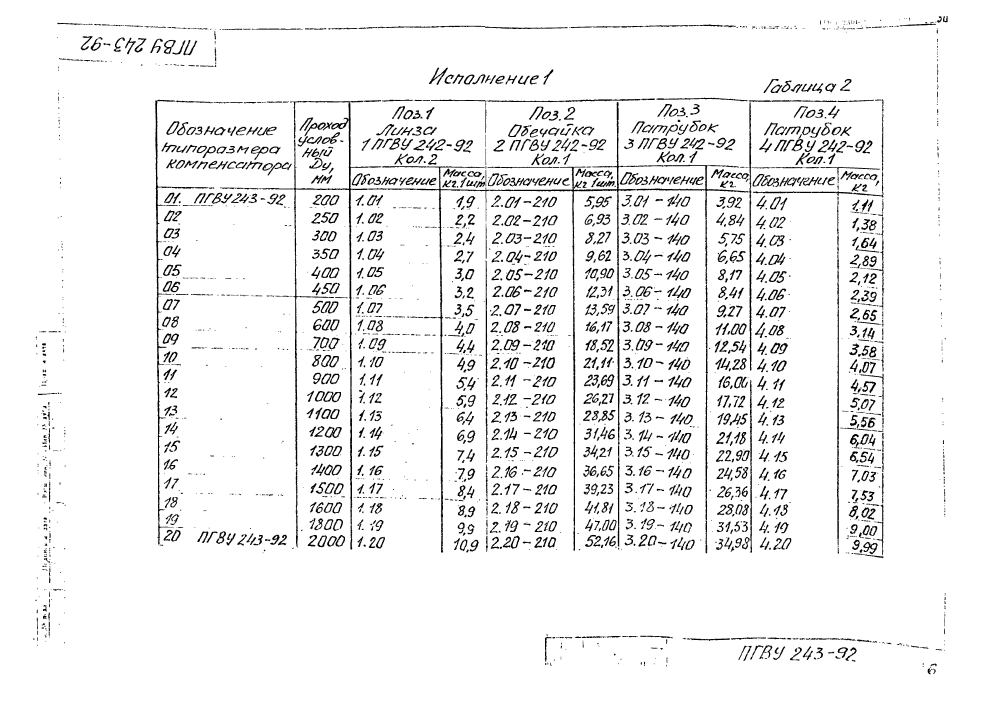 ПГВУ 243-92
Исполнение 1
Таблица 2
Обозначение типоразмера компенсатора | Проход условный Ду, мм | Поз.1 Линза 1 ПГВУ 242-92 Кол.2 | Поз.2 Обечайка 2 ПГВУ 242-92 Кол.1 | Поз.3 Патрубок 3 ПГВУ 242-92 Кол.1 | Поз.4 Патрубок 4 ПГВУ 242-92 Кол.1
Обозначение | Масса, кг. 1 шт | Обозначение | Масса, кг 1 шт. | Обозначение | Масса, кг | Обозначение | Масса, кг
01. ПГВУ 243-92 200 1.01 1,9 2.01-210 5,95 3.01-140 3,92 4.01 1,11
02 250 1.02 2,2 2.02-210 6,93 3.02-140 4,84 4.02 1,38
03 300 1.03 2,4 2.03-210 8,27 3.03-140 5,75 4.03 1,64
04 350 1.04 2,7 2.04-210 9,62 3.04-140 6,65 4.04 2,89
05 400 1.05 3,0 2.05-210 10,90 3.05-140 8,17 4.05 2,12
06 450 1.06 3,2 2.06-210 12,31 3.06-140 8,41 4.06 2,39
07 500 1.07 3,5 2.07-210 13,59 3.07-140 9,27 4.07 2,65
08 600 1.08 4,0 2.08-210 16,17 3.08-140 11,00 4.08 3,14
09 700 1.09 4,4 2.09-210 18,52 3.09-140 12,54 4.09 3,58
10 800 1.10 4,9 2.10-210 21,11 3.10-140 14,28 4.10 4,07
11 900 1.11 5,4 2.11-210 23,69 3.11-140 16,06 4.11 4,57
12 1000 1.12 5,9 2.12-210 26,27 3.12-140 17,72 4.12 5,07
13 1100 1.13 6,4 2.13-210 28,85 3.13-140 19,45 4.13 5,56
14 1200 1.14 6,9 2.14-210 31,46 3.14-140 21,18 4.14 6,04
15 1300 1.15 7,4 2.15-210 34,21 3.15-140 22,90 4.15 6,54
16 1400 1.16 7,9 2.16-210 36,65 3.16-140 24,58 4.16 7,03
17 1500 1.17 8,4 2.17-210 39,23 3.17-140 26,36 4.17 7,53
18 1600 1.18 8,9 2.18-210 41,81 3.18-140 28,08 4.18 8,02
19 1800 1.19 9,9 2.19-210 47,00 3.19-140 31,53 4.19 9,00
20 ПГВУ 243-92 2000 1.20 10,9 2.20-210 52,16 3.20-140 34,98 4.20 9,99
ПГВУ 243-92
6